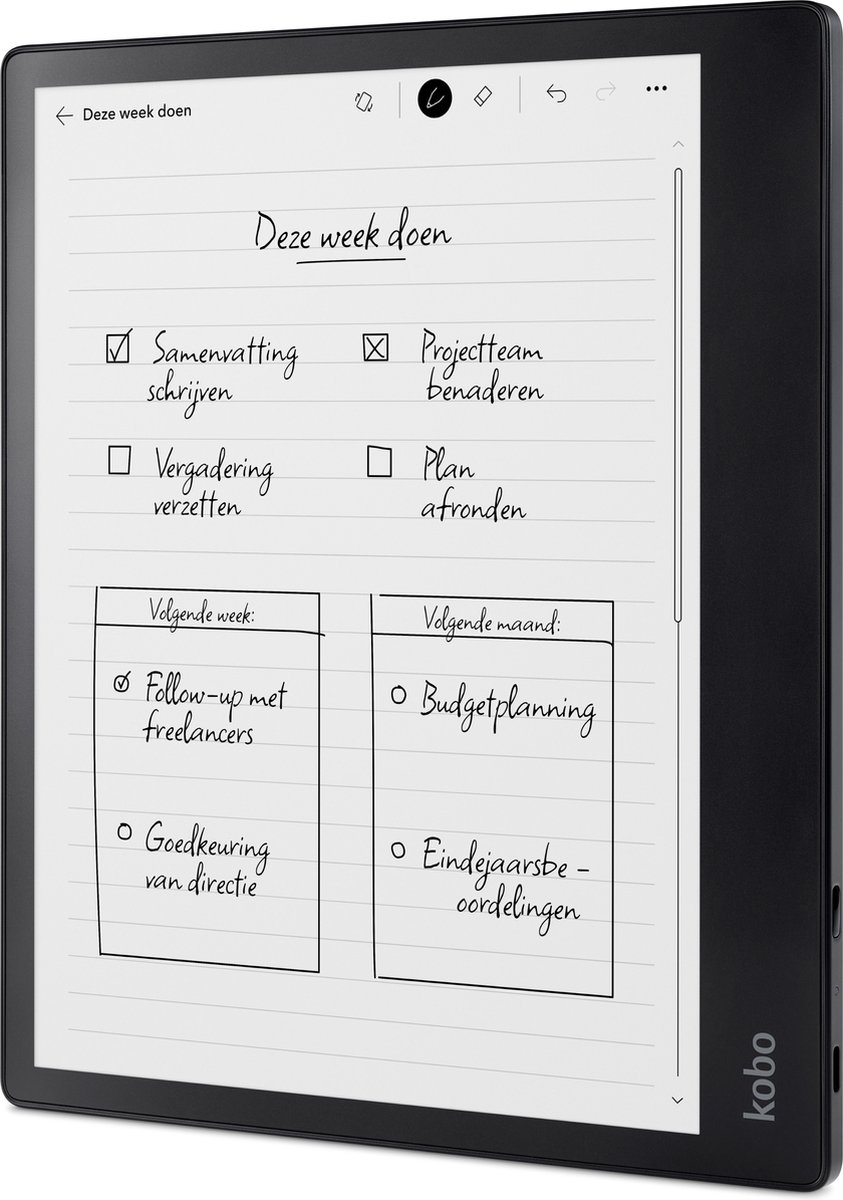 Deze week doen
Deze week doen
Samenvatting
schrijven
Projectteam
benaderen
Vergadering
verzetten
Plan
afronden
Volgende week:
Follow-up met
freelancers
Goedkeuring
van directie
Volgende maand:
Budgetplanning
Eindejaarsbe-
oordelingen
kobo